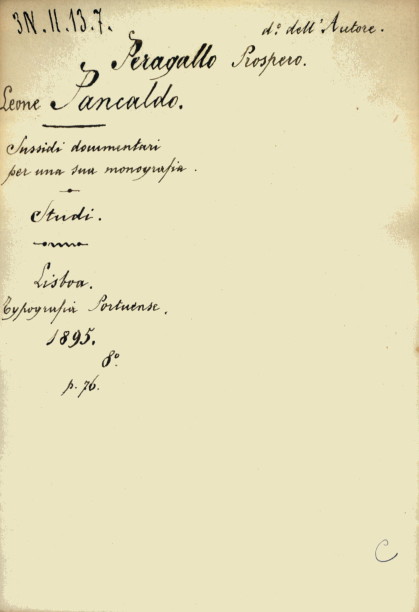 3N.11.13.7.
d.º dell'Autore.
Peragallo Prospero.
Leone Pancaldo.
Sussidi documentari
per una sua monografia.
Studi.
Lisboa.
Typografia Portuense.
1895.
8º.
p. 76.
C